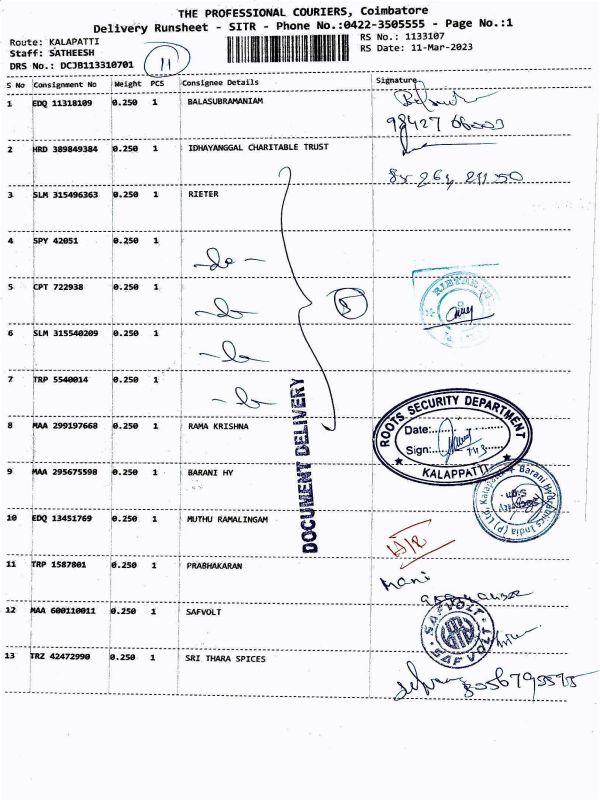 THE PROFESSIONAL COURIERS, Coimbatore
Delivery Runsheet - SITR - Phone No.:0422-3505555 - Page No.:1
Route: KALAPATTI
Staff: SATHEESH
DRS No.: DCJB113310701
11
RS No.: 1133107
RS Date: 11-Mar-2023
S No Consignment No Weight PCS Consignee Details Signature
1 EDQ 11318109 0.250 1 BALASUBRAMANIAM
98427
2 HRD 389849384 0.250 1 IDHAYANGGAL CHARITABLE TRUST
3 SLM 315496363 0.250 1 RIETER
4 SPY 42051 0.250 1 -do-
5 CPT 722938 0.250 1 -do-
5
6 SLM 315540209 0.250 1 -do-
7 TRP 5540014 0.250 1 -do-
DOCUMENT DELIVERY
8 MAA 299197668 0.250 1 RAMA KRISHNA
ROOTS SECURITY DEPARTMENT
Date:
Sign:
KALAPPATTI
9 MAA 295675598 0.250 1 BARANI HY
Barani Hydraulics India (P) Ltd, Kalapatti
Security
Sign.
10 EDQ 13451769 0.250 1 MUTHU RAMALINGAM
11 TRP 1587801 0.250 1 PRABHAKARAN
Mani
12 MAA 600110011 0.250 1 SAFVOLT
SAFVOLT
SAFVOLT
13 TRZ 42472990 0.250 1 SRI THARA SPICES